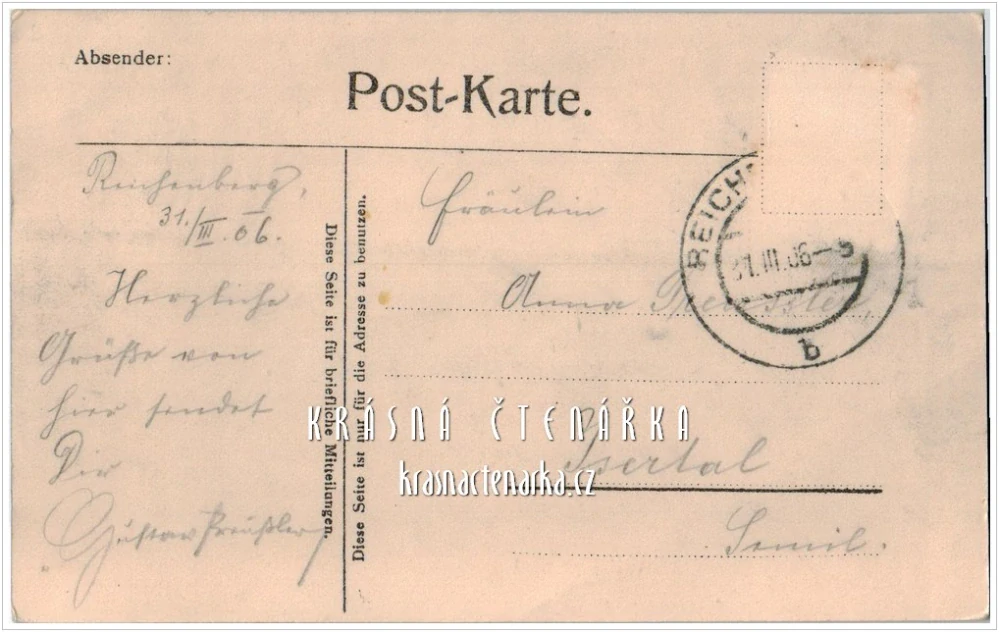 Absender:
Post-Karte.
Reichenberg,
31./III. 06.
Herzliche
Grüße von
hier sendet
Dir
Gustav Preußler
Diese Seite ist für briefliche Mitteilungen.
Diese Seite ist nur für die Adresse zu benutzen.
Fräulein
Anna
Isertal
Semil.
REICH
31.III.06-9
b
KRÁSNÁ ČTENÁŘKA
krasnactenarka.cz